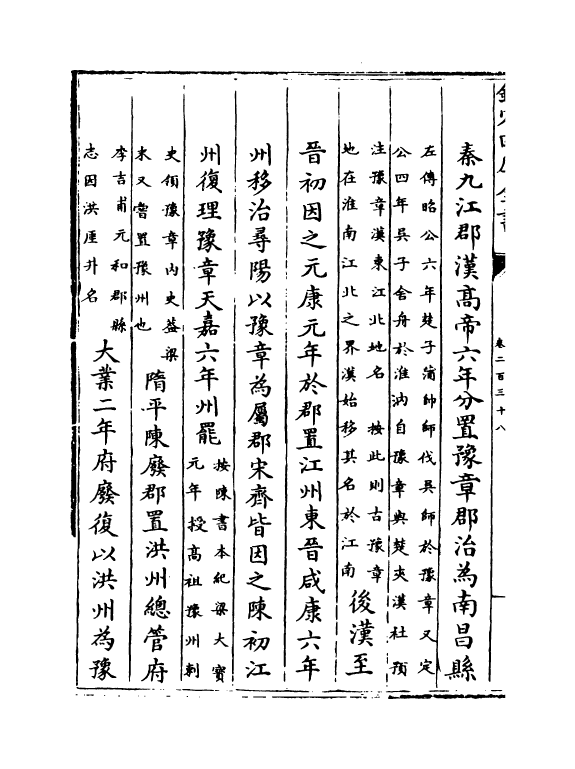 卷二百三十八
秦九江郡漢髙帝六年分置豫章郡治為南昌縣
左傳昭公六年楚子蕩帥師伐吳師於豫章又定
公四年吳子舍舟於淮汭自豫章與楚夾漢杜預
注豫章漢東江北地名 按此則古豫章
地在淮南江北之界漢始移其名於江南
後漢至
晉初因之元康元年於郡置江州東晉咸康六年
州移治尋陽以豫章為屬郡宋齊皆因之陳初江
州復理豫章天嘉六年州罷
按陳書本紀梁大寶
元年授高祖豫州刺
史領豫章內史葢梁
末又嘗置豫州也
隋平陳廢郡置洪州總管府
李吉甫元和郡縣
志因洪厓井名
大業二年府廢復以洪州為豫